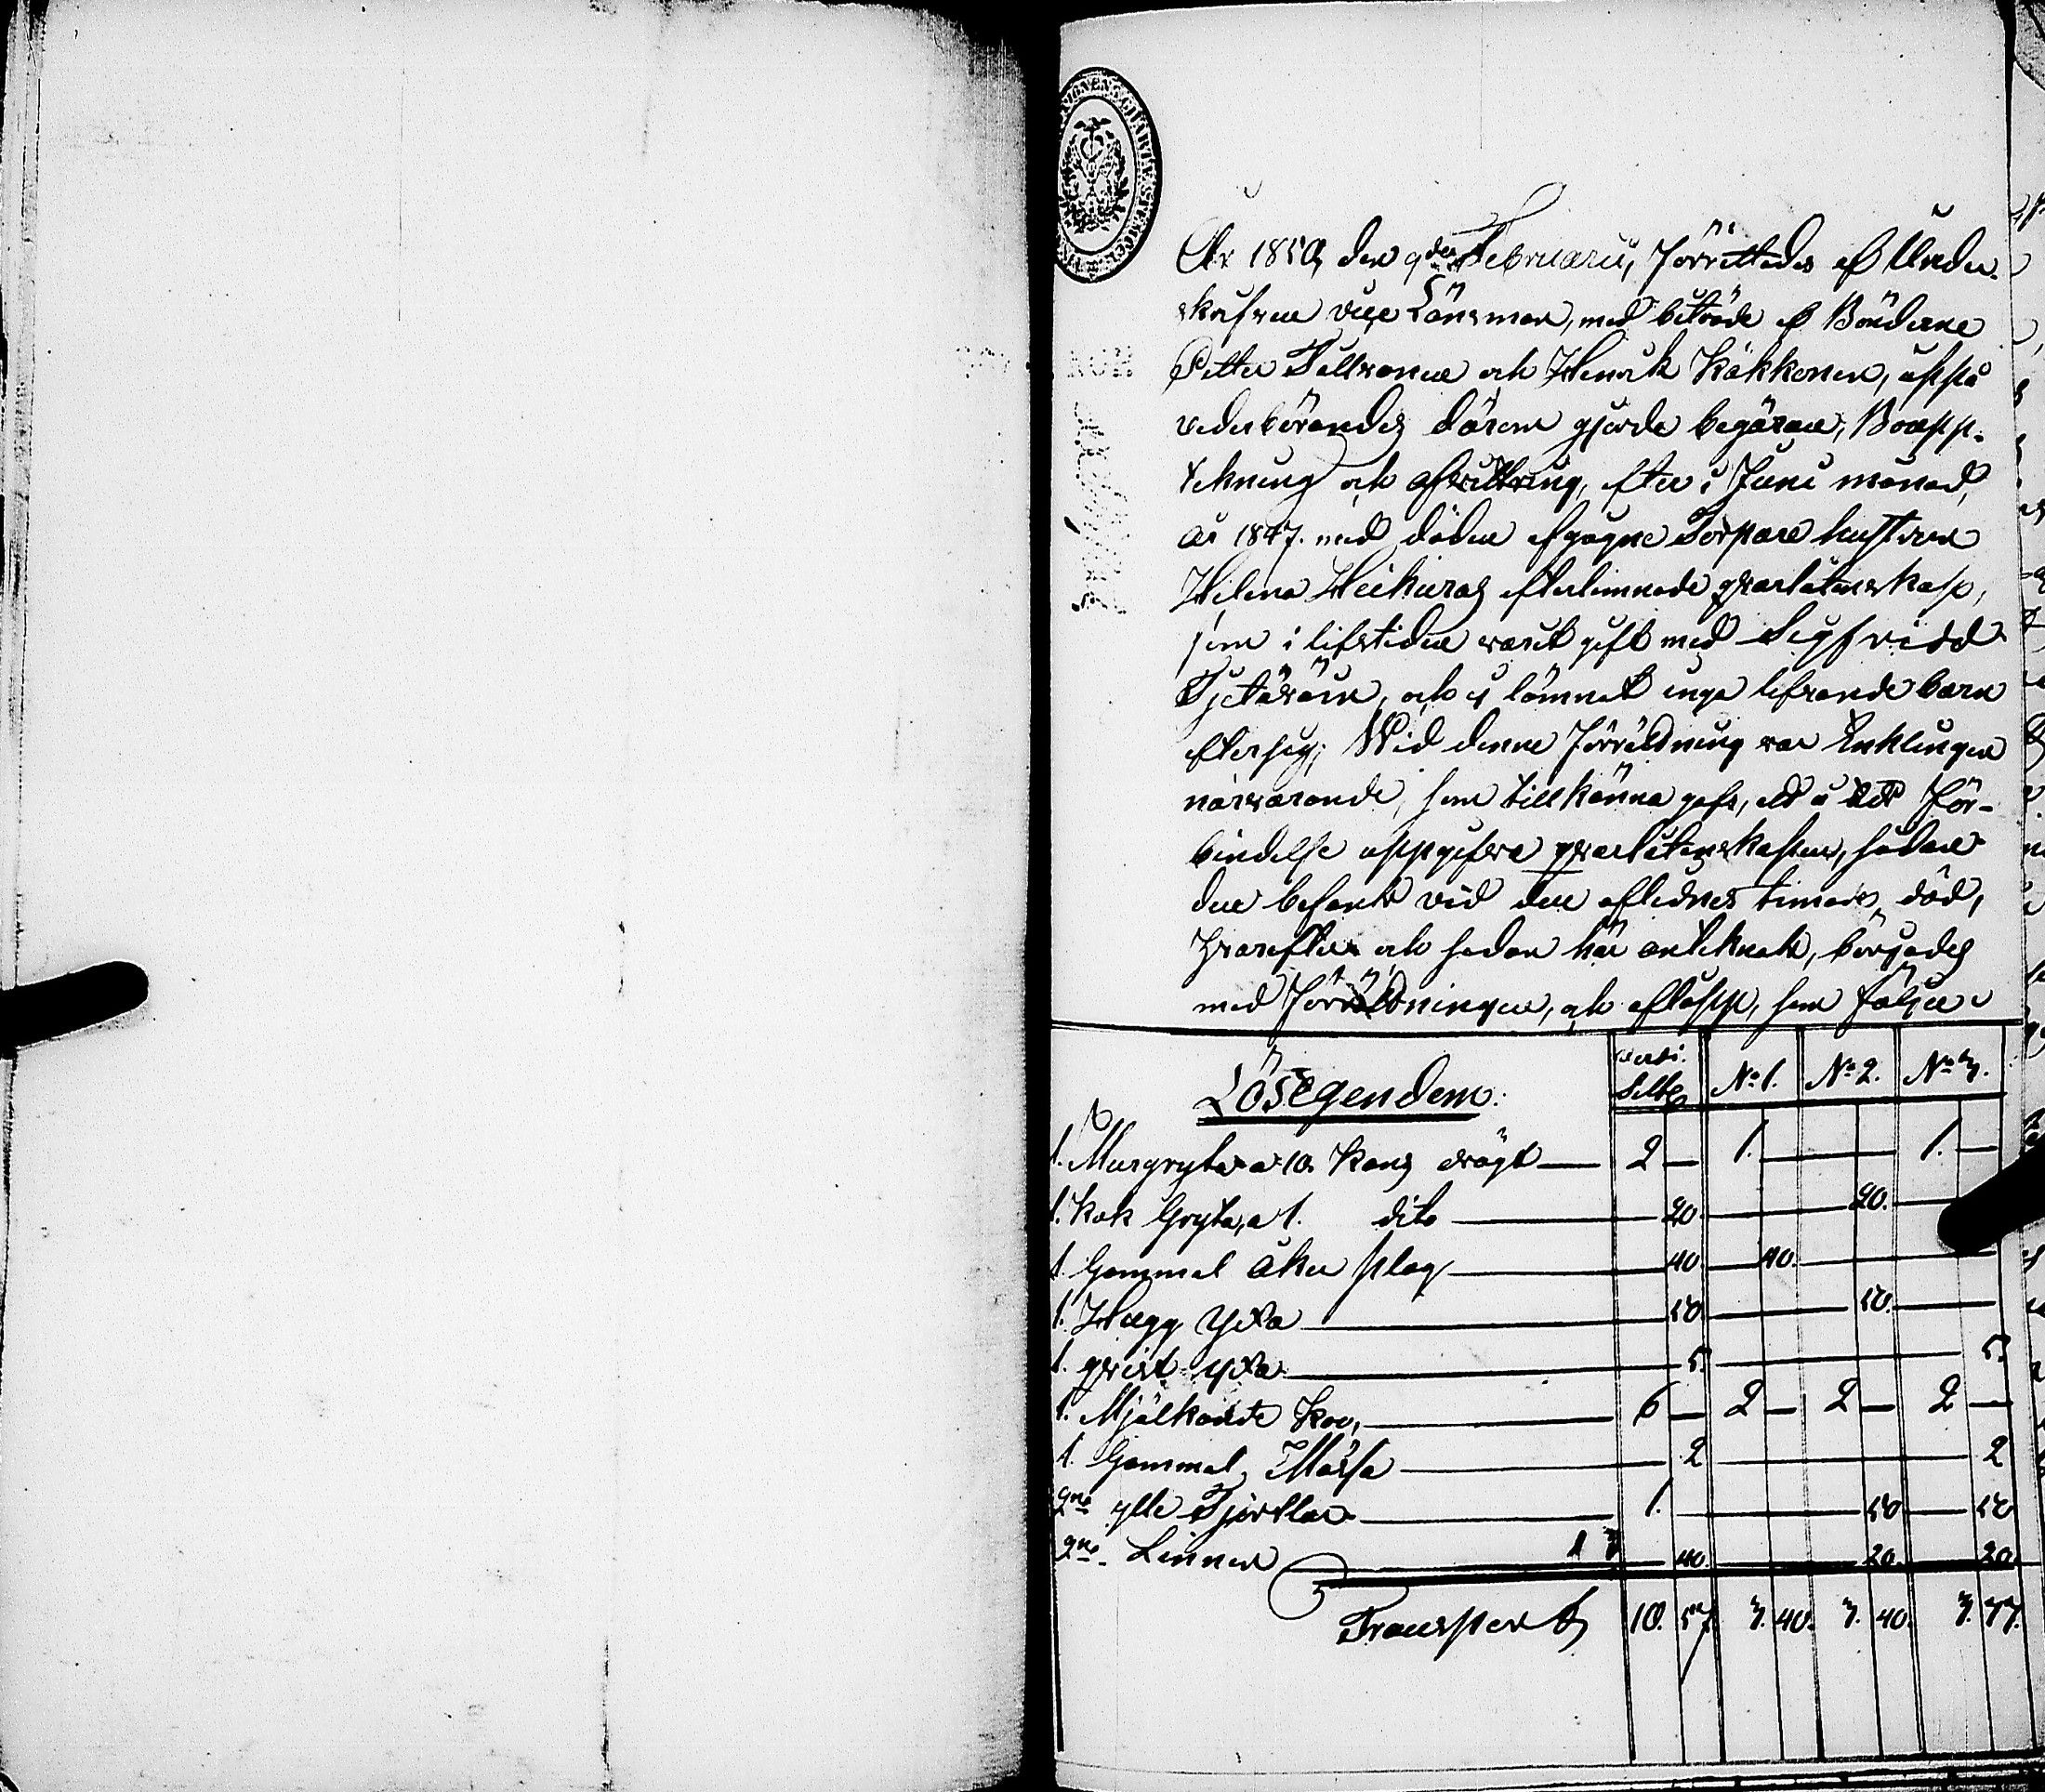 År 1850, den 9de Februarii, förrättades af Under-
skrifven vice Länsman, med biträde af Bönderne
Petter Tellvanen och Henrik Käkkönen, uppå
vederbörandes därom gjorde begäran, Boupp-
tekning och afvittring, efter i Juni månad,
år 1847. med döden afgågne Torpare hustrun
Helena Heikuras efterlemnade qvarlåtenskap,
som i lifstiden varit gift med Sigfridd
Tjetäväin, och ej lämnat inga lefvande barn
efter sig; Wid denne förrättning var Enklingen
närvarande, som tillkänna gafs, at å Ed för-
bindelse uppgifva qvarlåtenskapen, sådan
den befants vid den aflednes timade död,
hvarefter och sedan här anteknats, börjades
med förrättningen, och aflöpp, som följer
Lösegendem:
Värdi. Silfver No 1. No 2. No 3.
1. Murgryta a 10 kans drägt 2 — 1. — 1. —
1. kok Gryta, a 1. dito 20. 20.
1. Gammal åker plog 40. 40.
1. Hugg Yxa 50. 50.
1. qvist yxa 5. 5.
1. Mjölkande ko, 6 — 2 — 2 — 2 —
1. Gammal Mössa 2 2
2ne ylle Tjortlar 1. 50 50
2ne Linner 40. 20. 20.
Transport 10. 57. 3. 40. 3. 40. 3. 77.